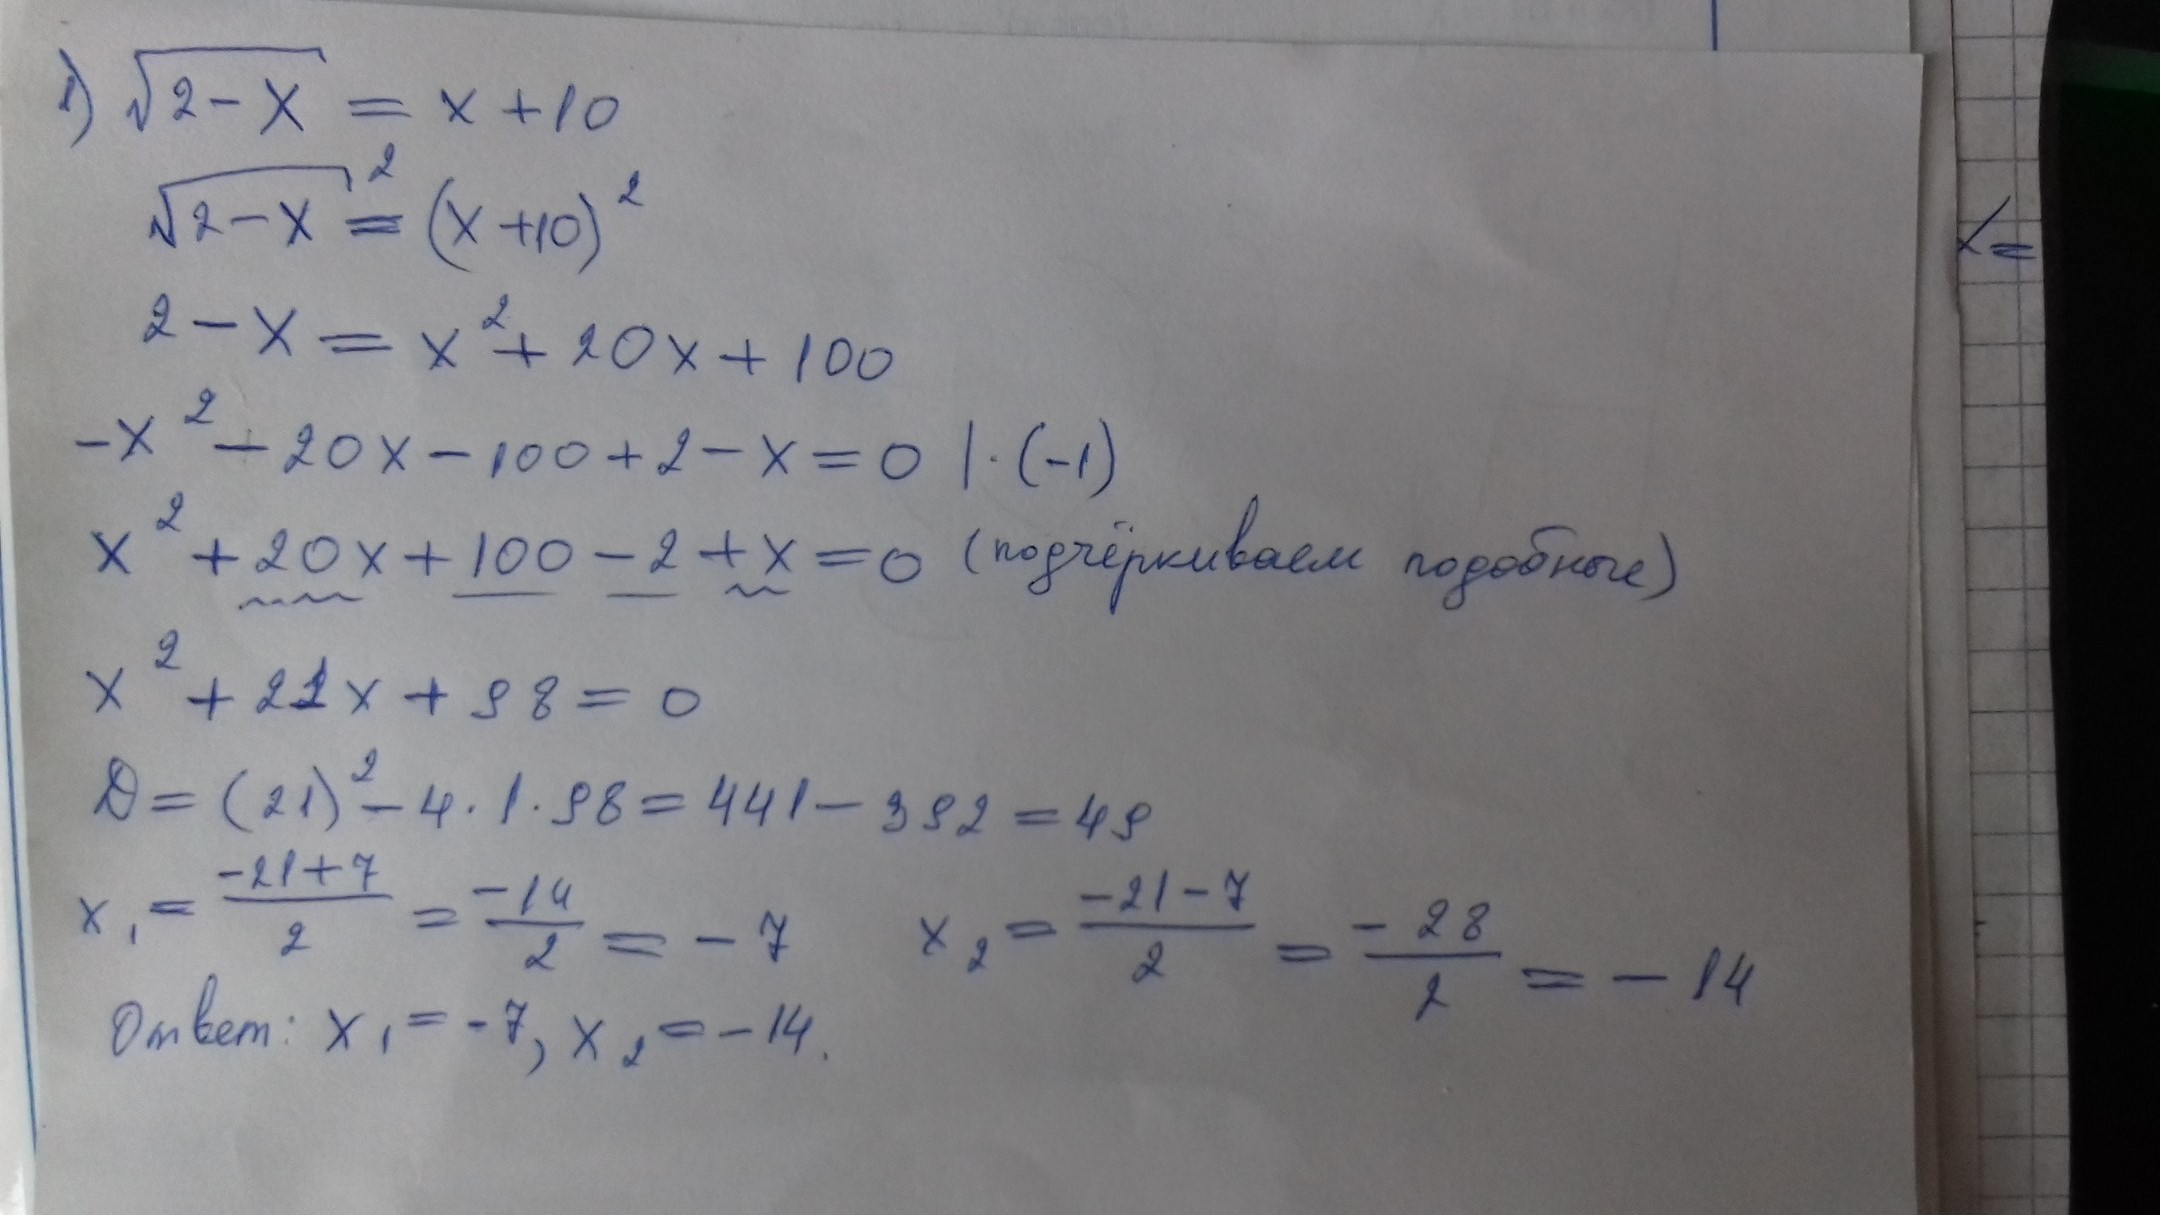 1) √2-x = x+10
√2-x² = (x+10)²
2-x = x²+20x+100
-x²-20x-100+2-x=0 |·(-1)
x²+20x+100-2+x=0 (подчёркиваем подобные)
x²+21x+98=0
D=(21)²-4·1·98=441-392=49
x₁=(-21+7)/2=-14/2=-7 x₂=(-21-7)/2=-28/2=-14
Ответ: x₁=-7, x₂=-14.